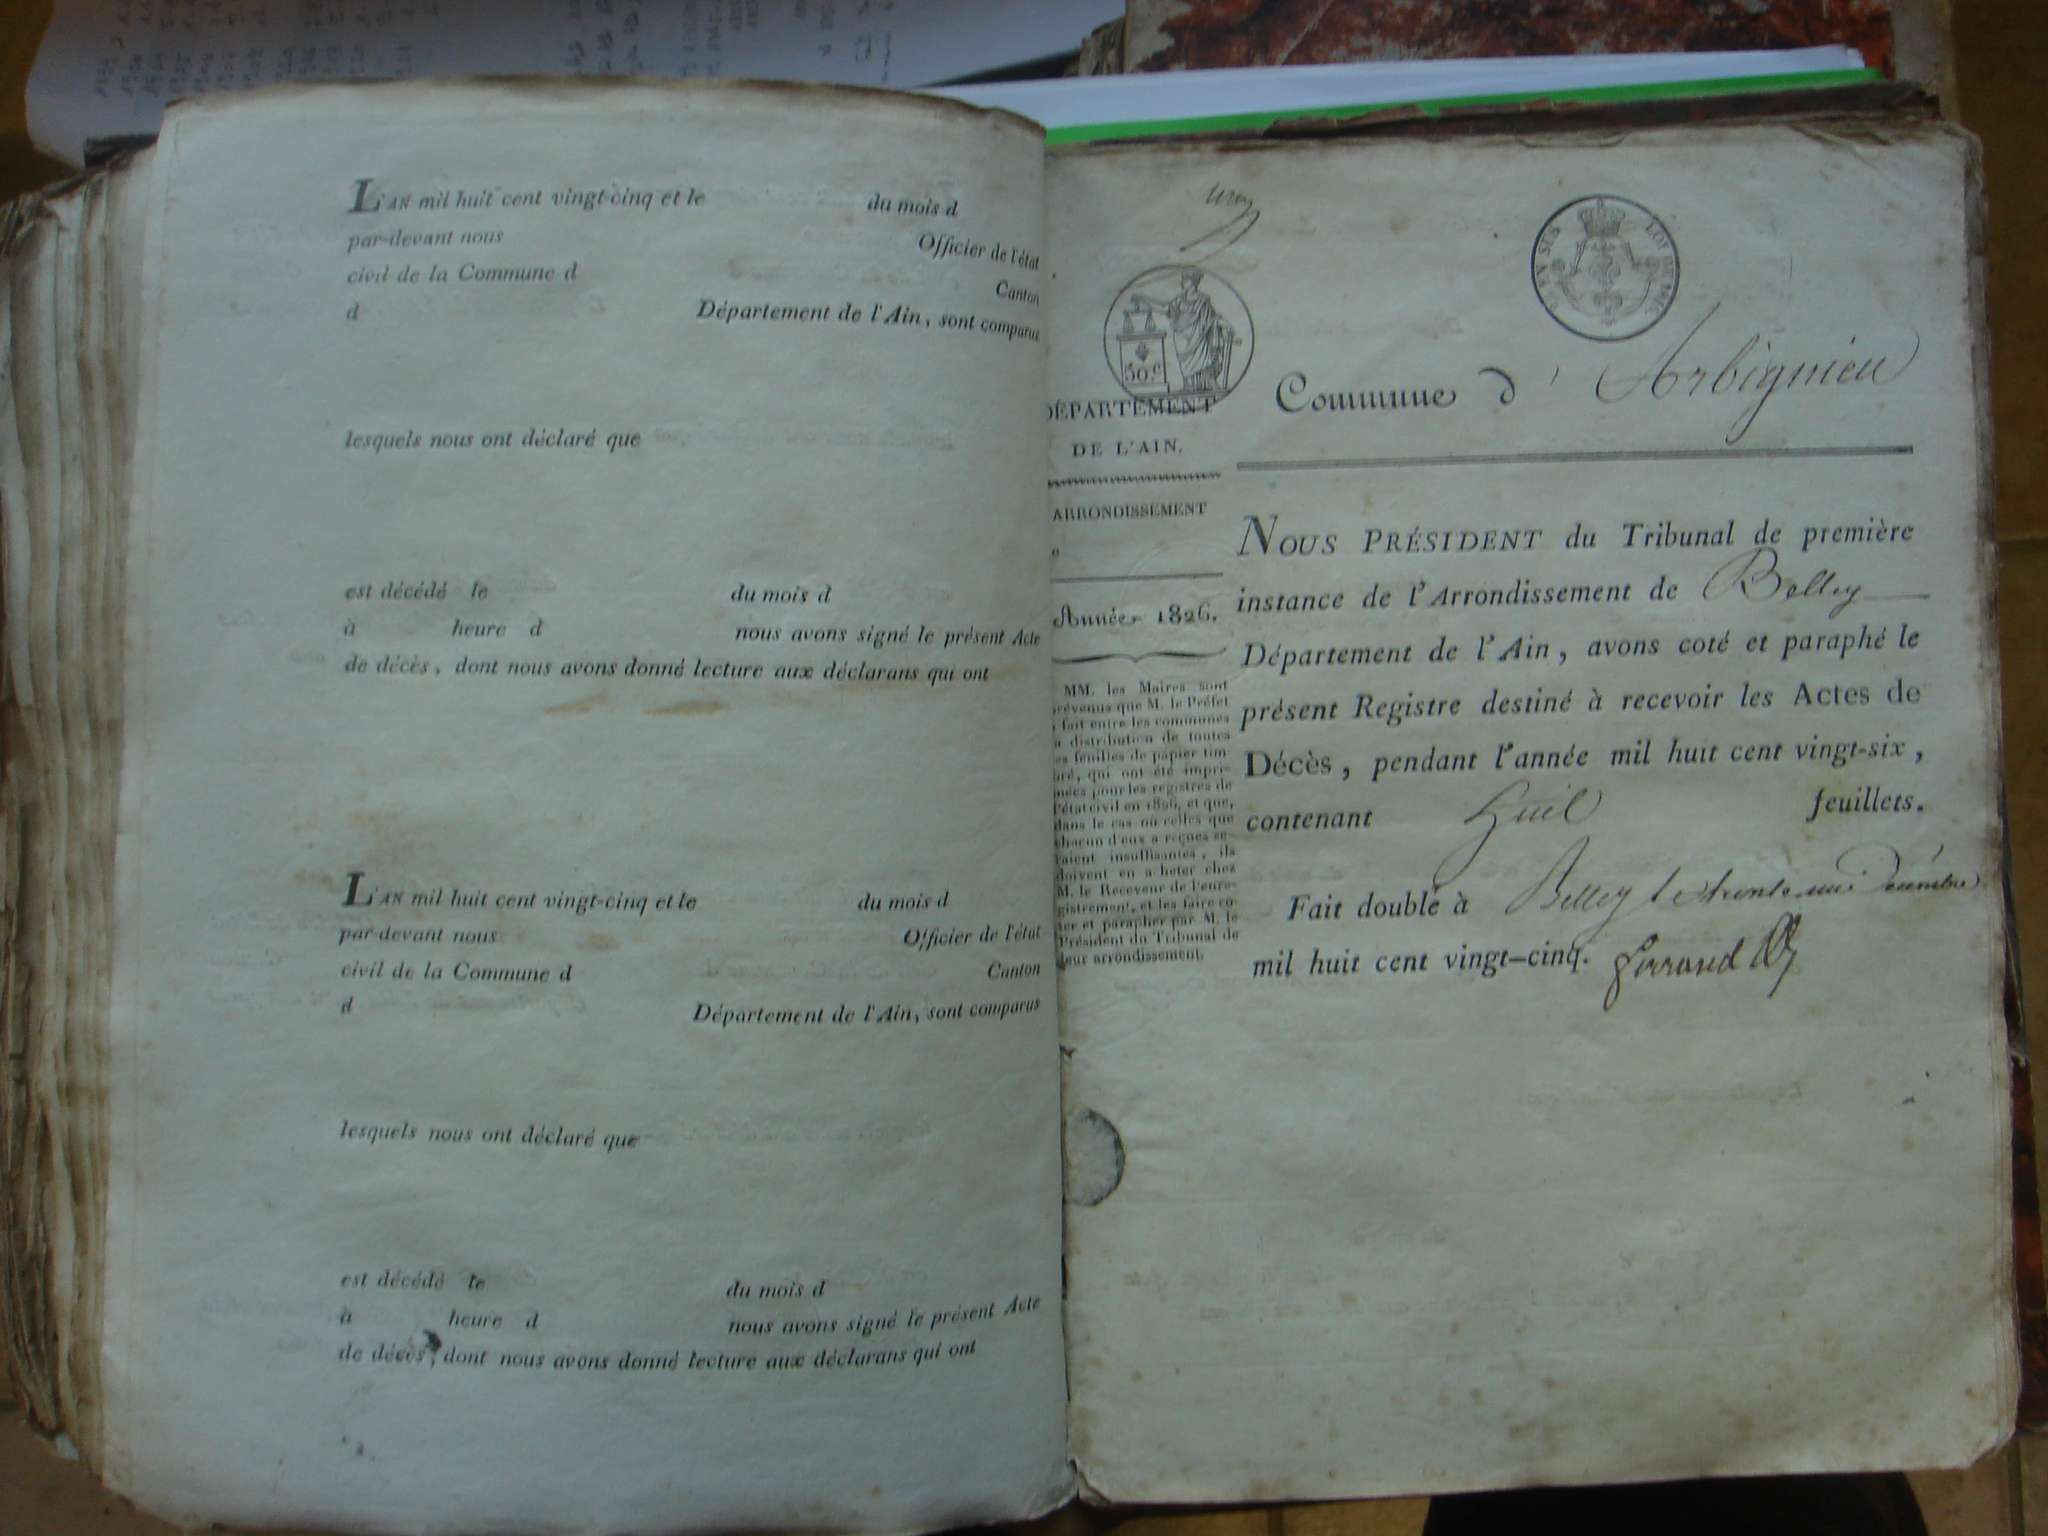 L'AN mil huit cent vingt-cinq et le du mois d
par-devant nous Officier de l'état
civil de la Commune d Canton
d Département de l'Ain, sont comparus
lesquels nous ont déclaré que
est décédé le du mois d
à heure d nous avons signé le présent Acte
de décès, dont nous avons donné lecture aux déclarans qui ont
L'AN mil huit cent vingt-cinq et le du mois d
par-devant nous Officier de l'état
civil de la Commune d Canton
d Département de l'Ain, sont comparus
lesquels nous ont déclaré que
est décédé le du mois d
à heure d nous avons signé le présent Acte
de décès, dont nous avons donné lecture aux déclarans qui ont
50.c
DÉPARTEMENT
DE L'AIN.
ARRONDISSEMENT
Année 1826.
MM. les Maires sont
prévenus que M. le Préfet
a fait entre les communes
la distribution de toutes
les feuilles de papier tim-
bré, qui ont été impri-
mées pour les registres de
l'état civil en 1826, et que,
dans le cas où celles que
chacun d'eux a reçues se-
raient insuffisantes, ils
doivent en acheter chez
M. le Receveur de l'enre-
gistrement, et les faire co-
ter et parapher par M. le
Président du Tribunal de
leur arrondissement.
Commune d'Arbignieu
NOUS PRÉSIDENT du Tribunal de première
instance de l'Arrondissement de Belley
Département de l'Ain, avons coté et paraphé le
présent Registre destiné à recevoir les Actes de
Décès, pendant l'année mil huit cent vingt-six,
contenant huit feuillets.
Fait double à Belley le trente un Décembre
mil huit cent vingt-cinq.